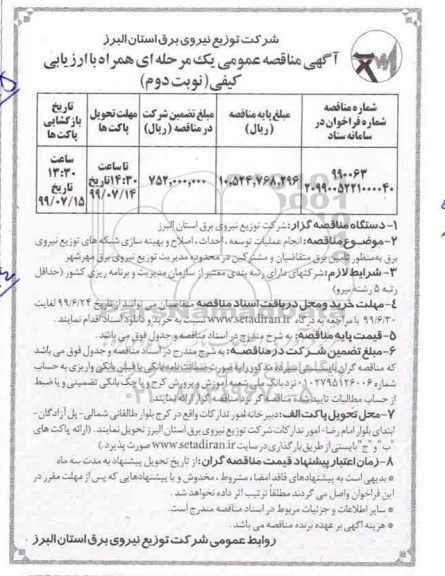 شرکت توزیع نیروی برق استان البرز
آگهی مناقصه عمومی یک مرحله ای همراه با ارزیابی
کیفی (نوبت دوم)
شماره مناقصه شماره فراخوان در سامانه ستاد
مبلغ پایه مناقصه (ریال)
مبلغ تضمین شرکت در مناقصه (ریال)
مهلت تحویل پاکت ها
تاریخ بازگشایی پاکت ها
۹۹۰۰۶۳
۲۰۹۹۰۰۵۲۲۱۰۰۰۰۴۰
۱۰,۵۲۴,۷۶۸,۲۹۶
۷۵۲,۰۰۰,۰۰۰
تا ساعت ۱۴:۳۰ تاریخ ۹۹/۰۷/۱۴
ساعت ۱۳:۳۰ تاریخ ۹۹/۰۷/۱۵
۱- دستگاه مناقصه گزار: شرکت توزیع نیروی برق استان البرز
۲- موضوع مناقصه: انجام عملیات توسعه، احداث، اصلاح و بهینه سازی شبکه های توزیع نیروی
برق به منظور تامین برق متقاضیان و مشترکین در محدوده مدیریت توزیع نیروی برق مهرشهر
۳- شرایط لازم: شرکتهای دارای رتبه بندی معتبر از سازمان مدیریت و برنامه ریزی کشور (حداقل
رتبه ۵ رشته نیرو)
۴- مهلت خرید و محل دریافت اسناد مناقصه: متقاضیان می توانند از تاریخ ۹۹/۶/۲۴ لغایت
۹۹/۶/۳۰ با مراجعه به درگاه www.setadiran.ir نسبت به خرید و دانلود اسناد اقدام نمایند.
۵- قیمت پایه مناقصه: به شرح مندرج در اسناد مناقصه و جدول فوق می باشد.
۶- مبلغ تضمین شرکت در مناقصه: به شرح مندرج در اسناد مناقصه و جدول فوق می باشد
که مناقصه گران بایستی سپرده مذکور را به صورت ضمانت نامه بانکی یا فیش بانکی واریزی به حساب
شماره ۰۱۰۲۷۹۵۱۲۶۰۰۶ نزد بانک ملی شعبه آموزش و پرورش کرج و یا چک بانکی تضمینی و یا ضبط
از حساب مطالبات تایید شده مناقصه گر به مناقصه گزار ارائه نمایند.
۷- محل تحویل پاکت الف: دبیرخانه امور تدارکات واقع در کرج بلوار طالقانی شمالی - پل آزادگان -
ابتدای بلوار امام رضا - امور تدارکات شرکت توزیع نیروی برق استان البرز تحویل نمایند. (ارائه پاکت های
"ب" و "ج" بایستی از طریق بارگذاری در سایت www.setadiran.ir صورت پذیرد.)
۸- زمان اعتبار پیشنهاد قیمت مناقصه گران: از تاریخ تحویل پیشنهاد به مدت سه ماه
* بدیهی است به پیشنهادهای فاقد امضاء، مشروط، مخدوش و یا پیشنهادهایی که پس از مهلت مقرر در
این فراخوان واصل می گردند مطلقاً ترتیب اثر داده نخواهد شد.
* سایر اطلاعات و جزئیات مربوط در اسناد مناقصه مندرج است.
* هزینه آگهی بر عهده برنده مناقصه می باشد.
روابط عمومی شرکت توزیع نیروی برق استان البرز